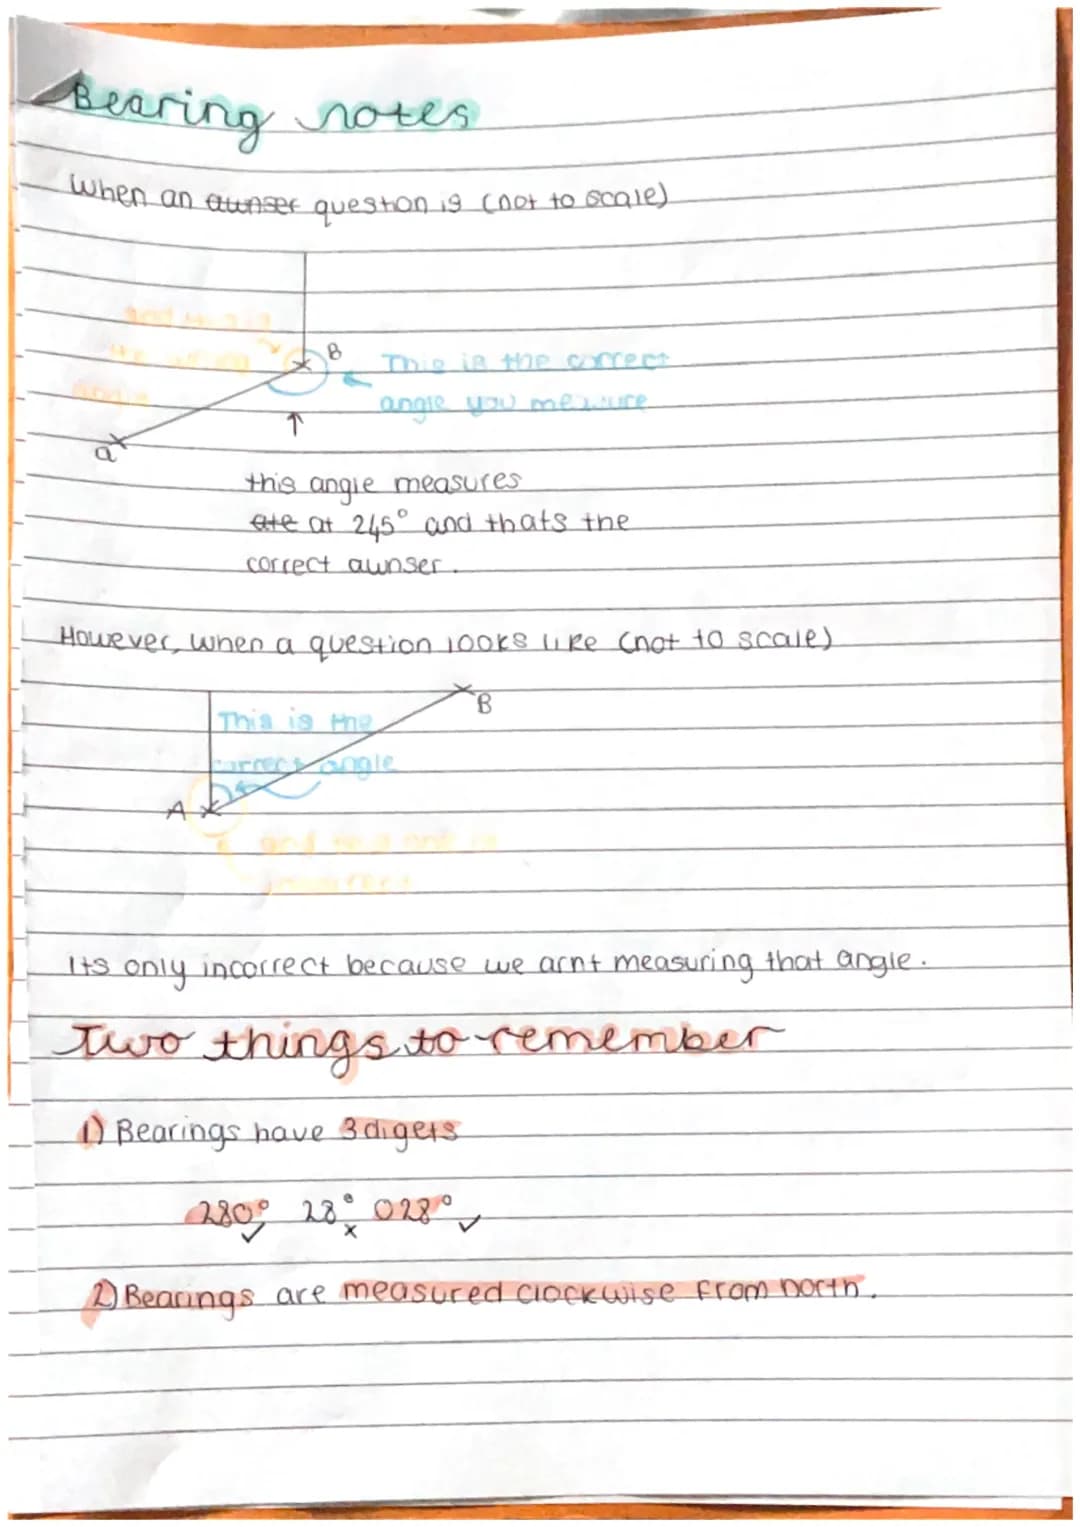 Bearing notes
When an awnser question is (not to scale)
and this is
the wrong
angle
B
This is the correct
angle you measure
a
this angle measures
ate at 245° and thats the
correct awnser.
However, when a question looks like (not to scale)
B
This is the
correct angle
A
and
incorrect
Its only incorrect because we arnt measuring that angle.
Two things to remember
1) Bearings have 3 digets
280° 28° 028°
2) Bearings are measured clockwise from north.